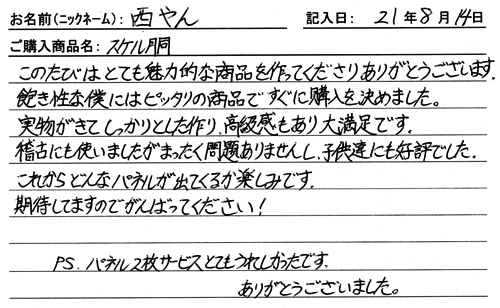 お名前(ニックネーム): 西やん 記入日: 21年8月14日
ご購入商品名: スケル胴
このたびはとても魅力的な商品を作ってくださりありがとうございます。
飽き性な僕にはピッタリの商品ですぐに購入を決めました。
実物がきてしっかりとした作り、高級感もあり大満足です。
稽古にも使いましたがまったく問題ありませんし、子供達にも好評でした。
これからどんなパネルが出てくるか楽しみです。
期待してますのでがんばってください!
PS. パネル2枚サービスとてもうれしかったです。
ありがとうございました。